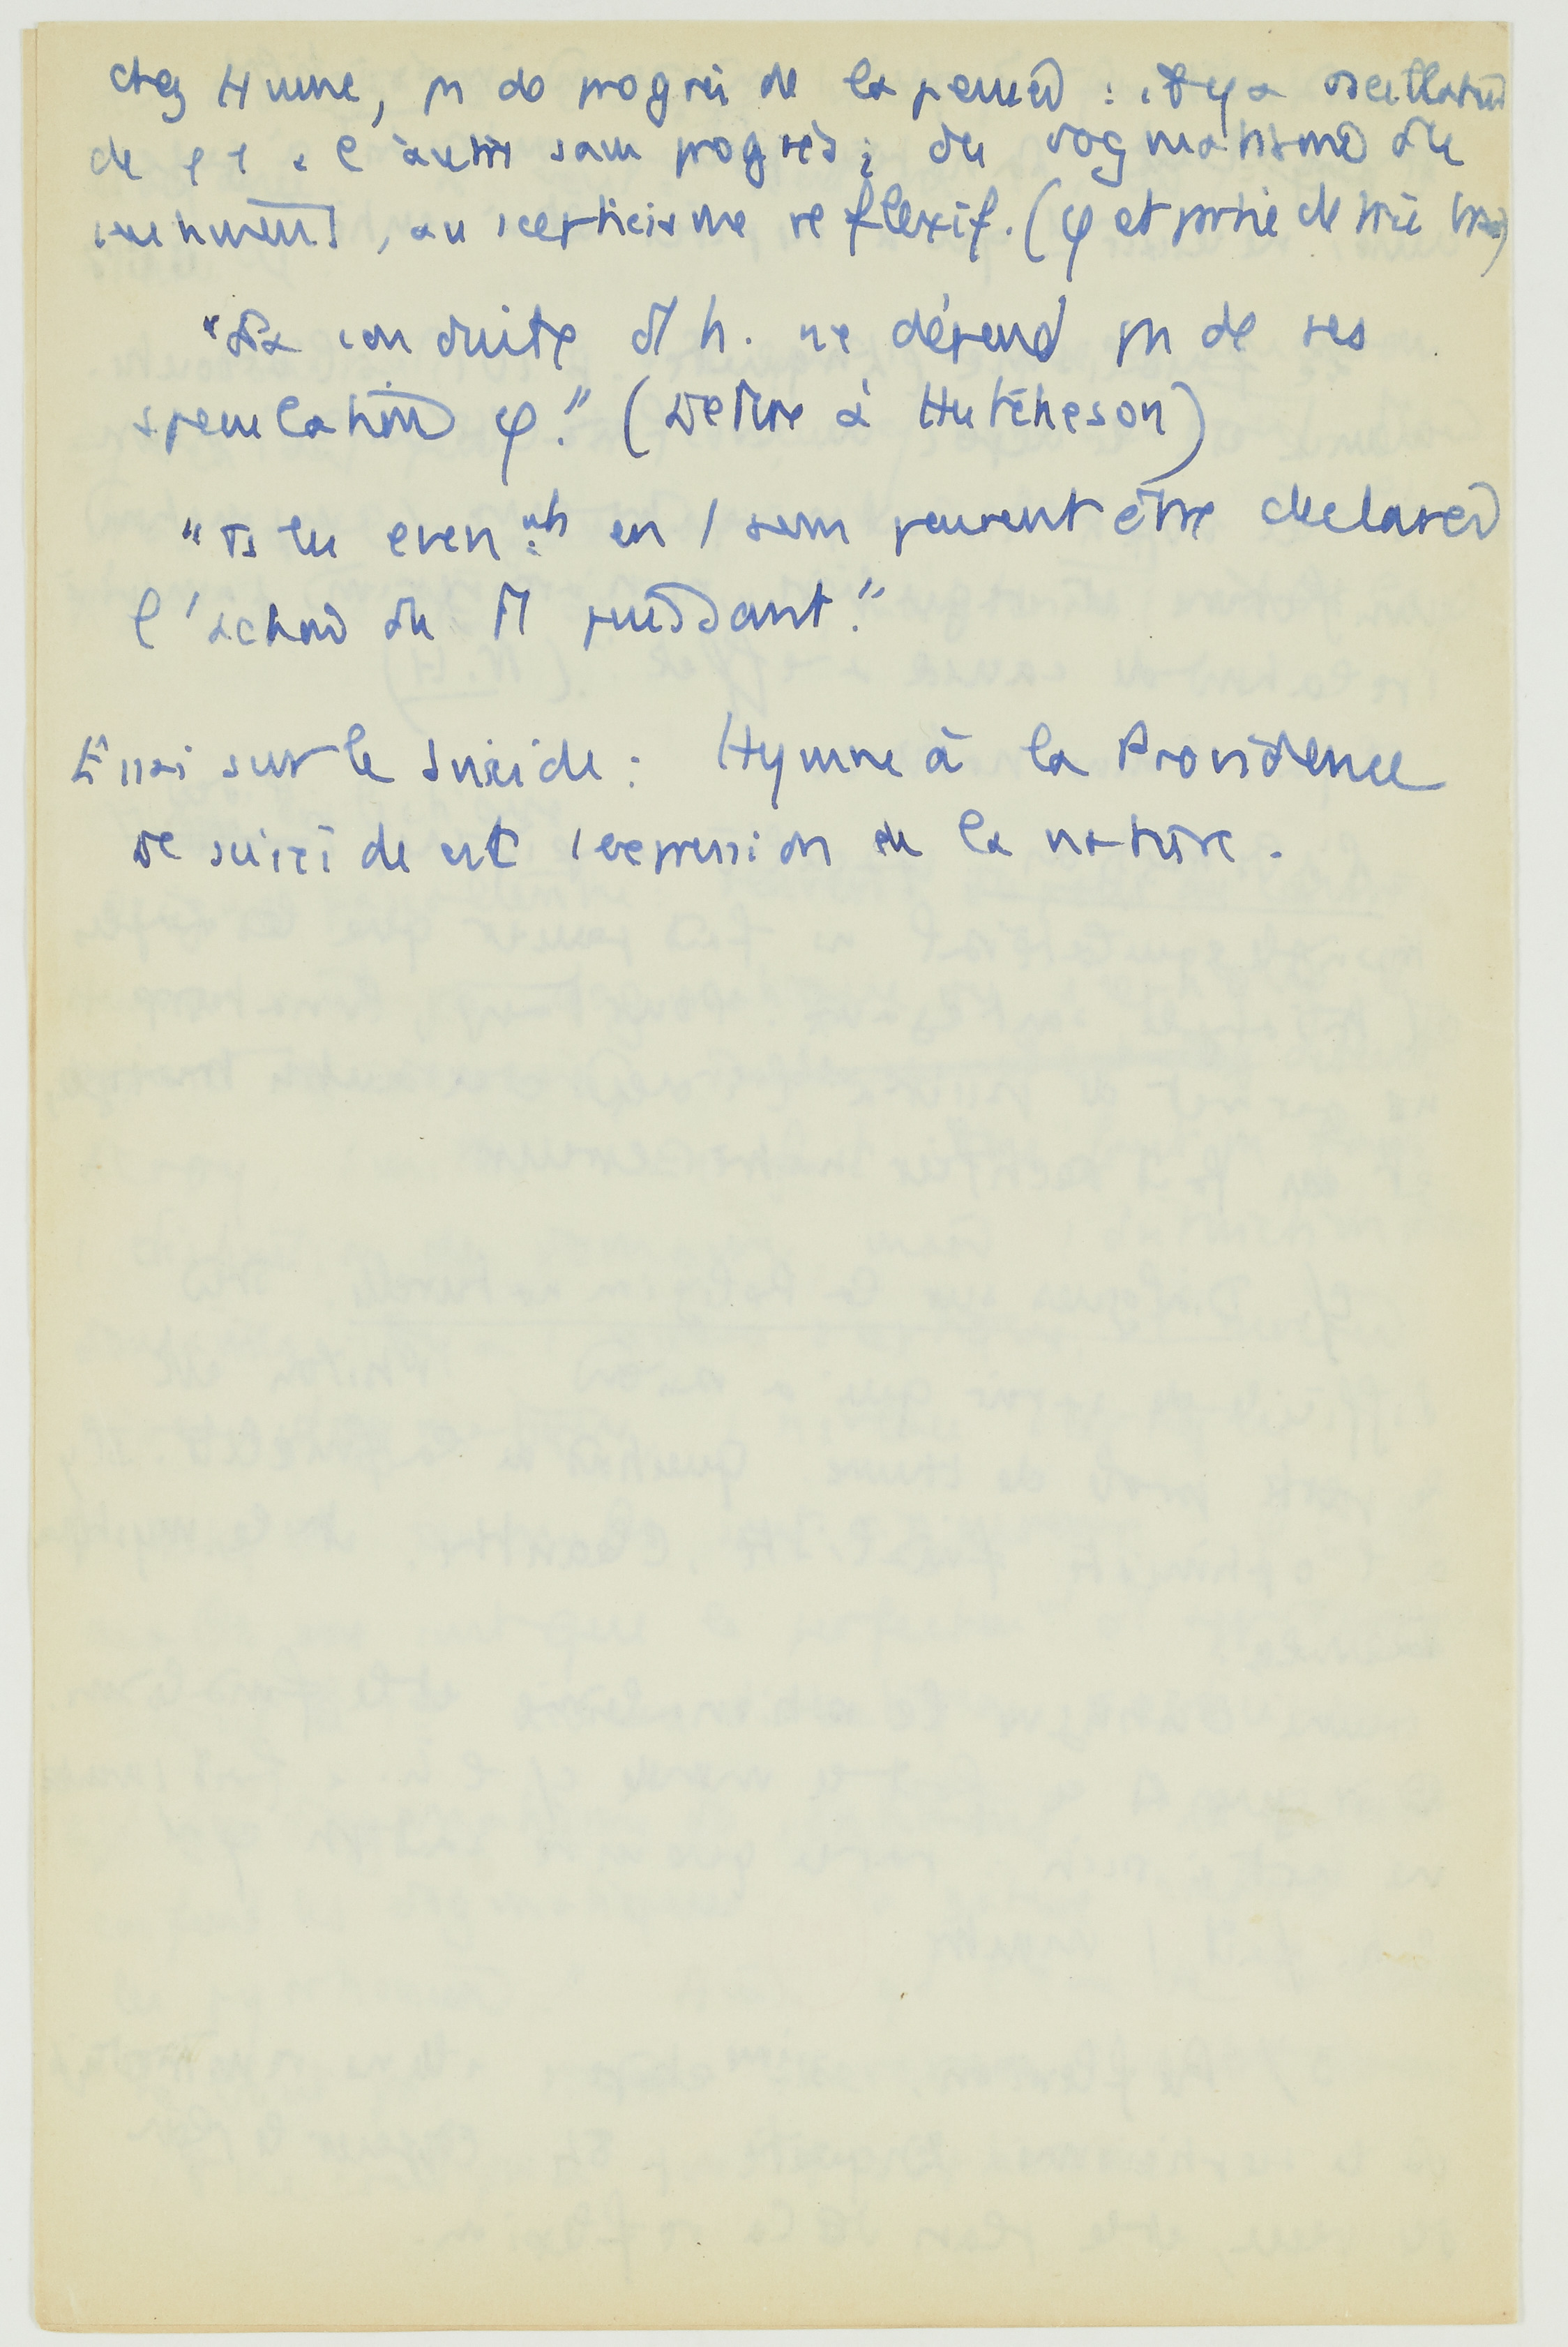 Chez Hume, pas de progrès de la pensée : il y a oscillation
de l'1 à l'autre sans progrès ; du dogmatisme du
sentiment, au scepticisme réflexif. (φ et partie de
"La conduite d'1 h. ne dépend pas de ses
spéculations φ." (Lettre à Hutcheson)
"Ts les évenᵗˢ en 1 sens peuvent être déclarés
l'action du Tt puissant."
Essai sur le Suicide : Hymne à la Providence
Le suicide est l'expression de la nature.